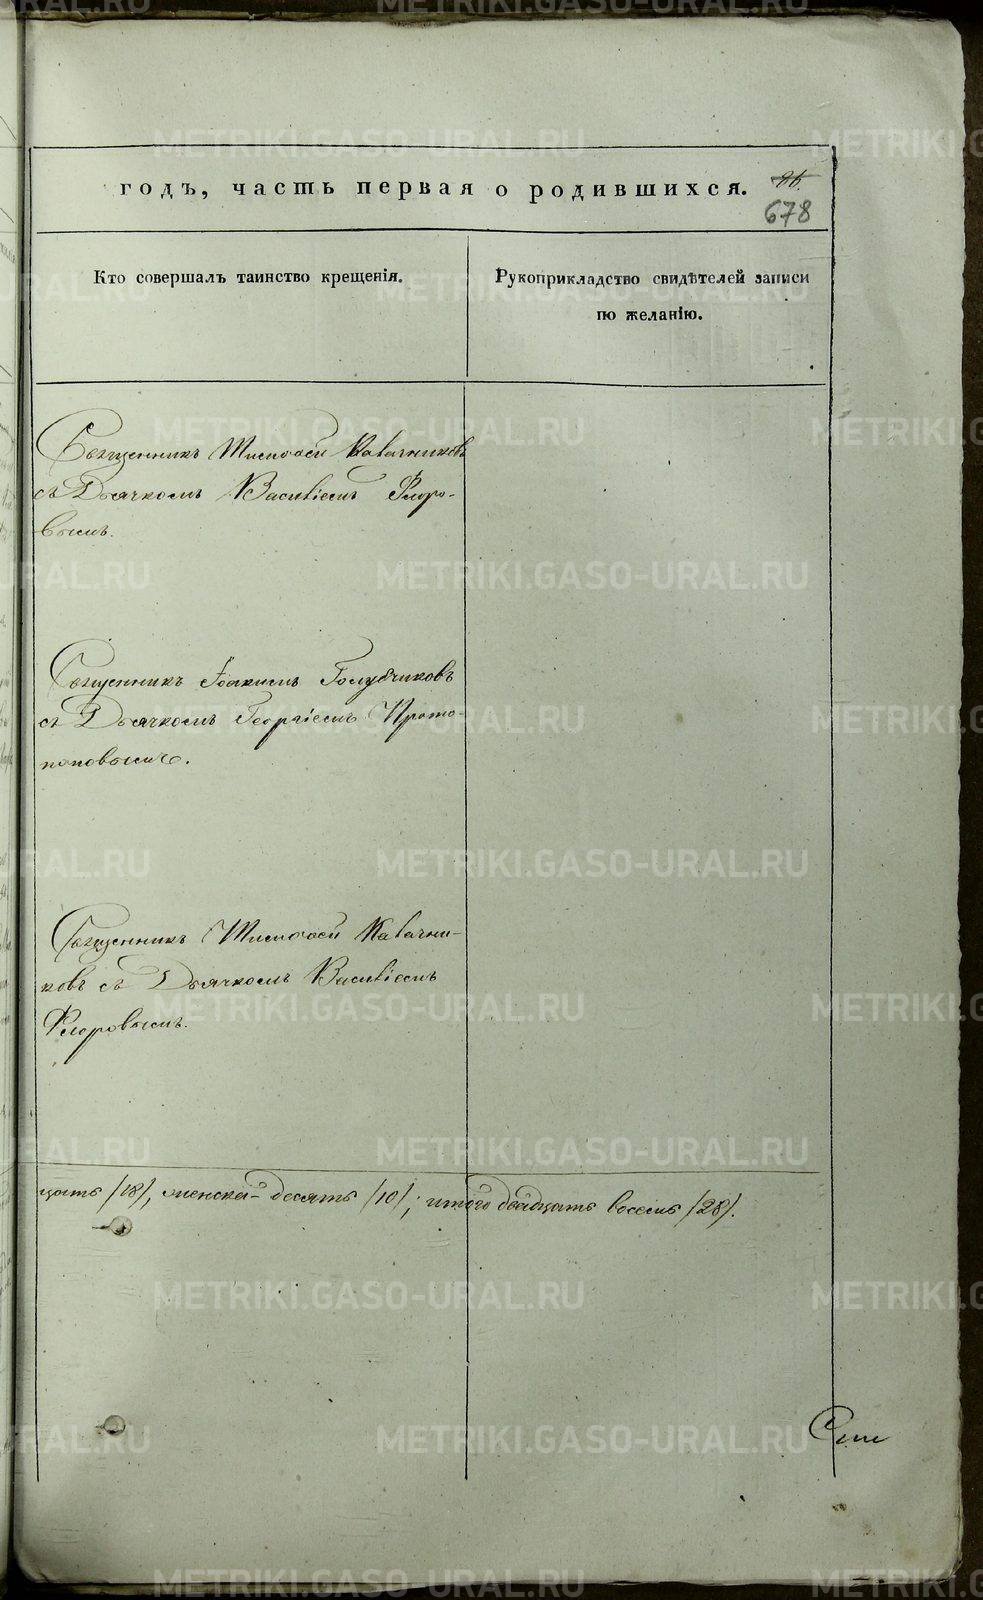 годъ, часть первая о родившихся.
678
Кто совершалъ таинство крещенія.
Рукоприкладство свидѣтелей записи
по желанію.
Священникъ Тимофей Кавачниковъ
съ Дьячкомъ Василіемъ Флоро-
вымъ.
Священникъ Іоакимъ Голубчиковъ
съ Дьячкомъ Георгіемъ Прото-
поповымъ.
Священникъ Тимофей Кавачни-
ковъ съ Дьячкомъ Василіемъ
Флоровымъ.
цать /18/, женска- десять /10/, итого двадцать восемь /28/.
METRIKI.GASO-URAL.RU